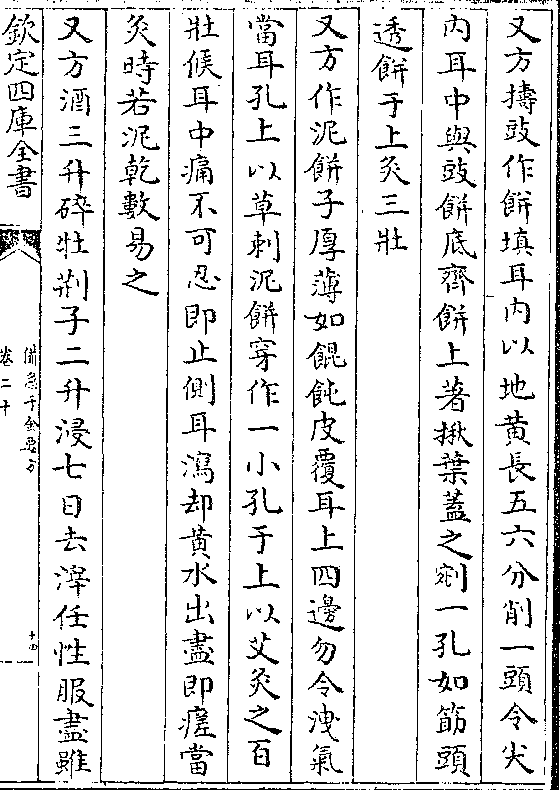 又方擣豉作餅填耳内以地黄長五六分削一頭令尖
内耳中與豉餅底齊餅上著揪葉蓋之剜一孔如筯頭
透餅于上灸三壯
又方作泥餅子厚薄如餛飩皮覆耳上四邊勿令洩氣
當耳孔上以草刺泥餅穿作一小孔于上以艾灸之百
壯候耳中痛不可忍即止側耳瀉却黄水出盡即瘥當
灸時若泥乾數易之
又方酒三升碎牡荆子二升浸七日去滓任性服盡雖
欽定四庫全書
備急千金要方
卷二十
十四